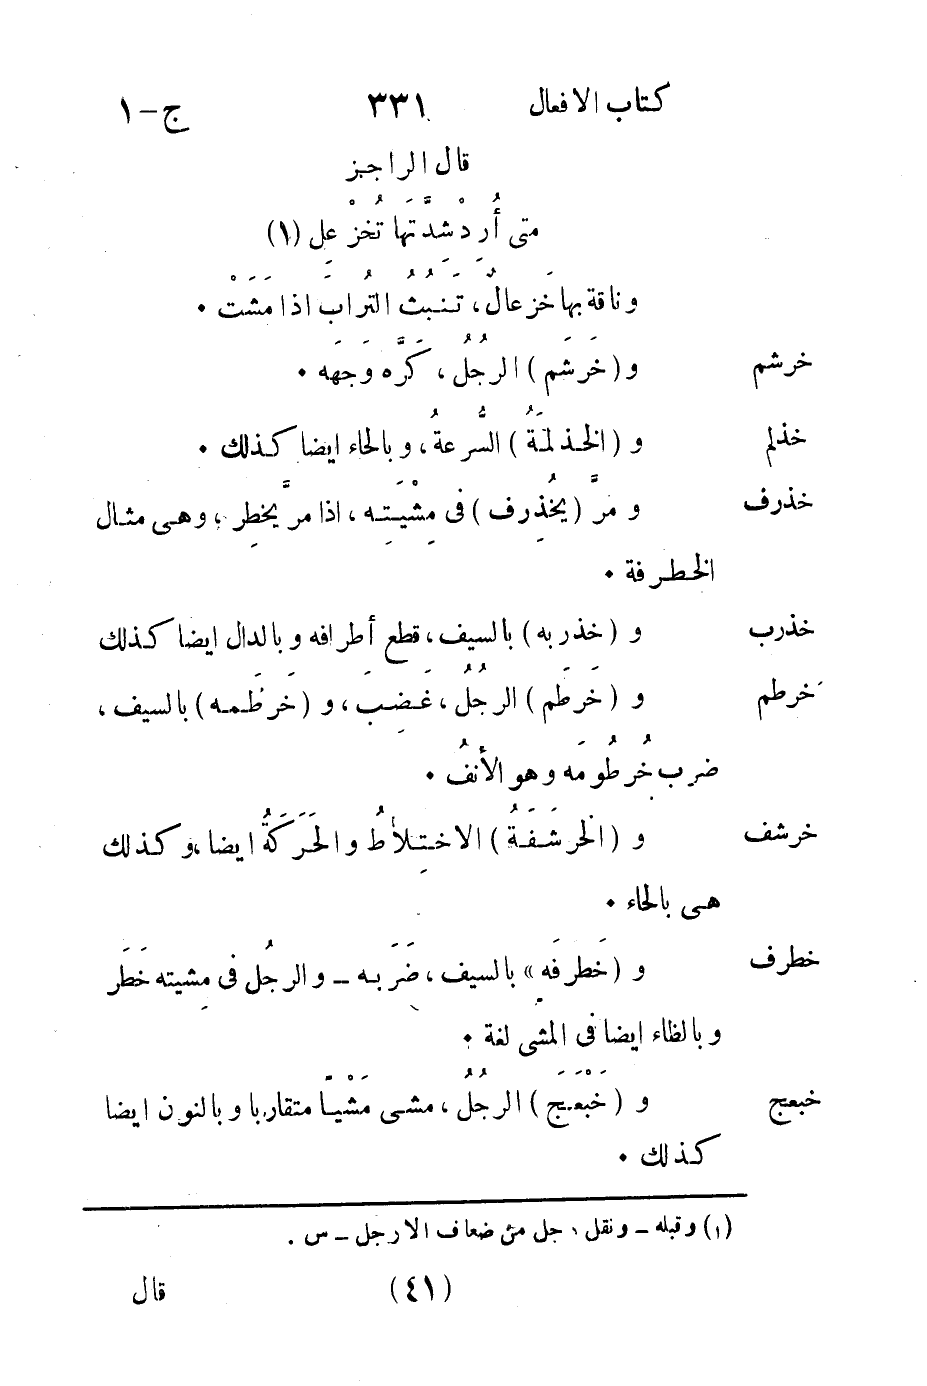 كتاب الافعال ٣٣١ ج-١
قال الراجز
متى أُرِدْ شِدَّتَها تُخَزْعِلِ (١)
وناقة بها خَزعالٌ، تَنبُثُ الترابَ اذا مَشَتْ.
خرشم و (خَرشَم) الرجُلُ، كَرَّه وَجهَه.
خذلم و (الخذلمَةُ) السُّرعةُ، وبالحاء ايضا كذلك.
خذرف و مَرَّ (يُخذرِف) فى مِشْيَتِه، اذا مرَّ يخطِر، وهى مثال
الخطرفة.
خذرب و (خذربه) بالسيف، قطع أطرافه وبالدال ايضا كذلك
خرطم و (خَرطَم) الرجُلُ، غَضِبَ، و (خَرطَمه) بالسيف،
ضرب خُرطُومَه وهو الأنفُ.
خرشف و (الخرشَفَةُ) الاختِلاطُ والحَرَكَةُ ايضا، وكذلك
هى بالحاء.
خطرف و (خَطرفَه» بالسيف، ضَرَبه – والرجُل فى مِشيته خَطَر
وبالظاء ايضا فى المشى لغة.
خبعج و (خَبْعَج) الرجُلُ، مشى مَشْيًا متقاربا وبالنون ايضا
كذلك.
(١) وقبله – ونقل رجل من ضعاف الارجل – س.
(٤١) قال